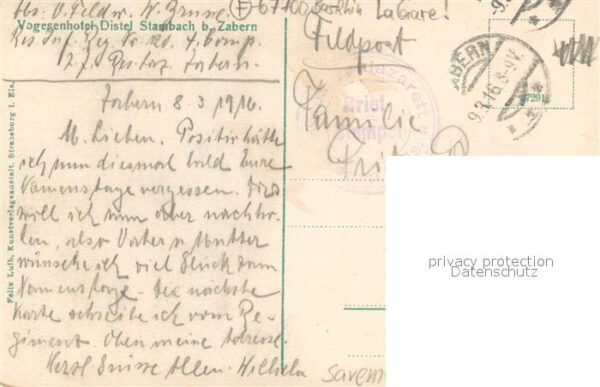 Abs. V. Feldw. W.
F 67700 La Gare!
Vogesenhotel Distel Stambach b. Zabern
Res. Inf. Reg. No. 4. Comp.
z. Z. Res. Laz. Zabern.
Zabern 8.3.1916.
M. Lieben. Positiv hätte
ich nun diesmal bald Eure
Namenstage vergessen. Dies
will ich nun aber nachho-
len, also Vater u. Mutter
wünsche ich viel Glück zum
Namenstage. Die nächste
Karte schreibe ich vom Re-
giment. Oben meine Adresse.
Herzl. Grüsse Allen. Wilhelm
Felix Luib, Kunstverlagsanstalt, Strassburg i. Els.
Feldpost
Familie
Fritz
Lazarett
Brief
Stempel
ZABERN
9.3.16. 8-9V.
9.3
47291
privacy protection
Datenschutz